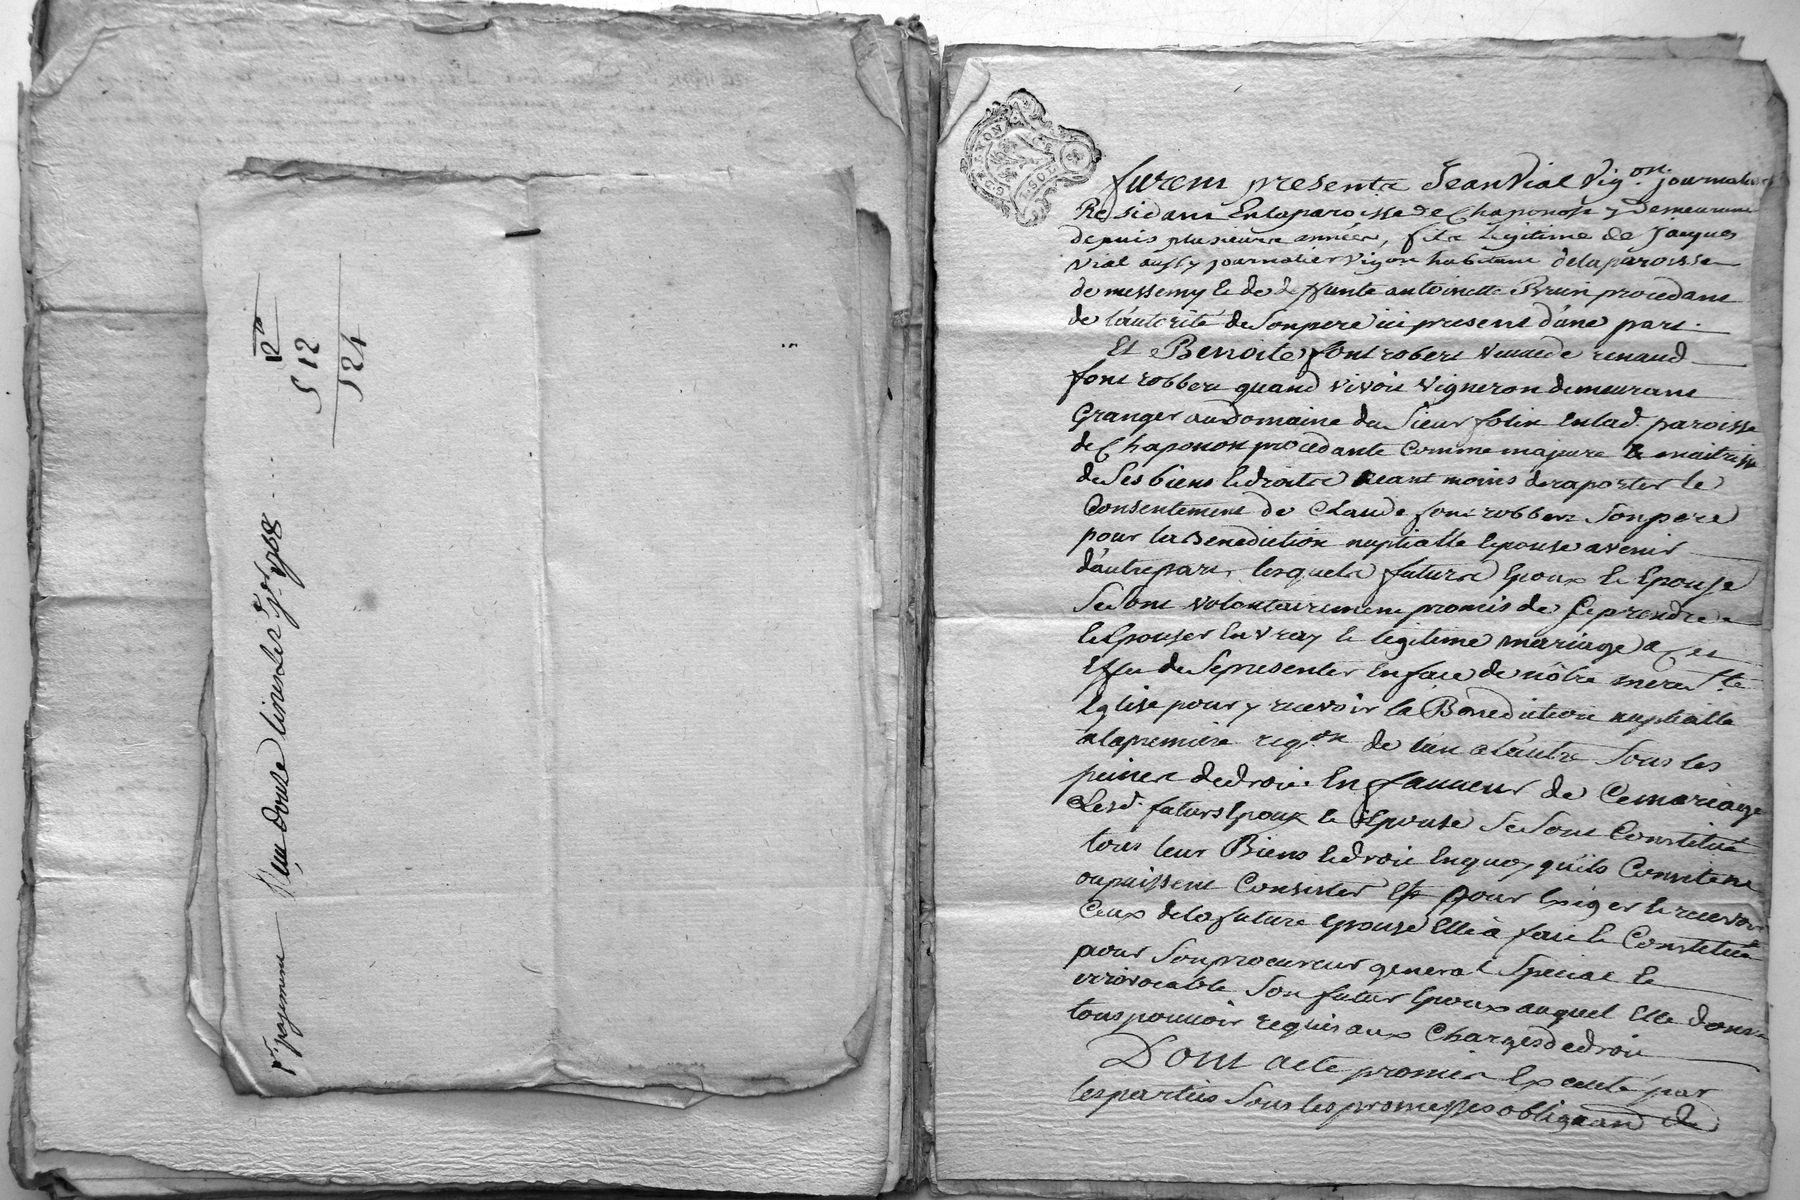 12
5 12
524
1er payement
douze livres le 1er 1768
LYON
SOL
furent presents Jean Vial Vig.on journalier
Residant En la paroisse de Chaponost y Demeurant
depuis plusieurs années, fils légitime de Jacques
Vial aussy journalier Vigon habitant de la paroisse
de messemy & de deffunte antoinette Brun procedant
de l'autorité de Son pere ici present d'une part.
Et Benoite font robert veuve de renaud
font robbert quand vivoit vigneron demeurant
Granger au Domaine du Sieur folin En lad. paroisse
de Chaponost procedante comme majeure & maitresse
de Ses biens & droits neant moins de raporter le
Consentement de Claude font robbert Son pere
pour la Benediction nuptialle Epouse avenir
d'autre part, lesquels futurs Epoux & Epouse
Se Sont volontairement promis de Se prendre
& Epouser En vray & legitime mariage a cet
Effet de Se presenter En face de nôtre mere Ste
Eglise pour y recevoir la Benediction nuptialle
a la premiere reqon de l'un a l'autre Sous les
peines de droit. En faveur de Ce mariage
Lesd. futurs Epoux & Epouse Se Sont Constitués
tous leur Biens & droit En quoy qu'ils Consistent
ou puissent Consister & pour Exiger & recevoir
Ceux de la future Epouse Elle a fait & Constitué
pour Son procureur general Special &
irrevocable Son futur Epoux auquel Elle donne
tous pouvoir requis aux Charges de droit
Dont acte promis Executé par
les parties Sous les promesses obligaon &